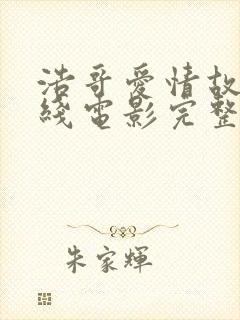 浩哥愛情故
綫電影完整
朱家輝